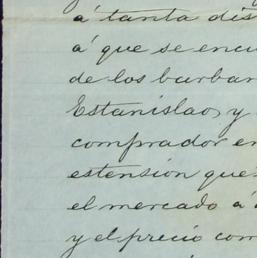 á tanta dis
á que se encu
de los barbar
Estanislao, y
comprador en
estension que
el mercado á
y el precio com